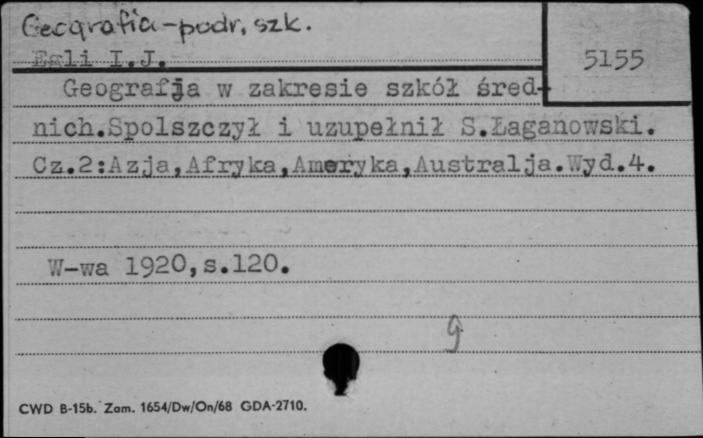 Geografia-podr. szk.
Egli I.J.
5155
Geografja w zakresie szkół śred-
nich.Spolszczył i uzupełnił S.Łaganowski.
Cz.2:Azja,Afryka,Ameryka,Australja.Wyd.4.
W-wa 1920,s.120.
g
CWD B-15b. Zam. 1654/Dw/On/68 GDA-2710.